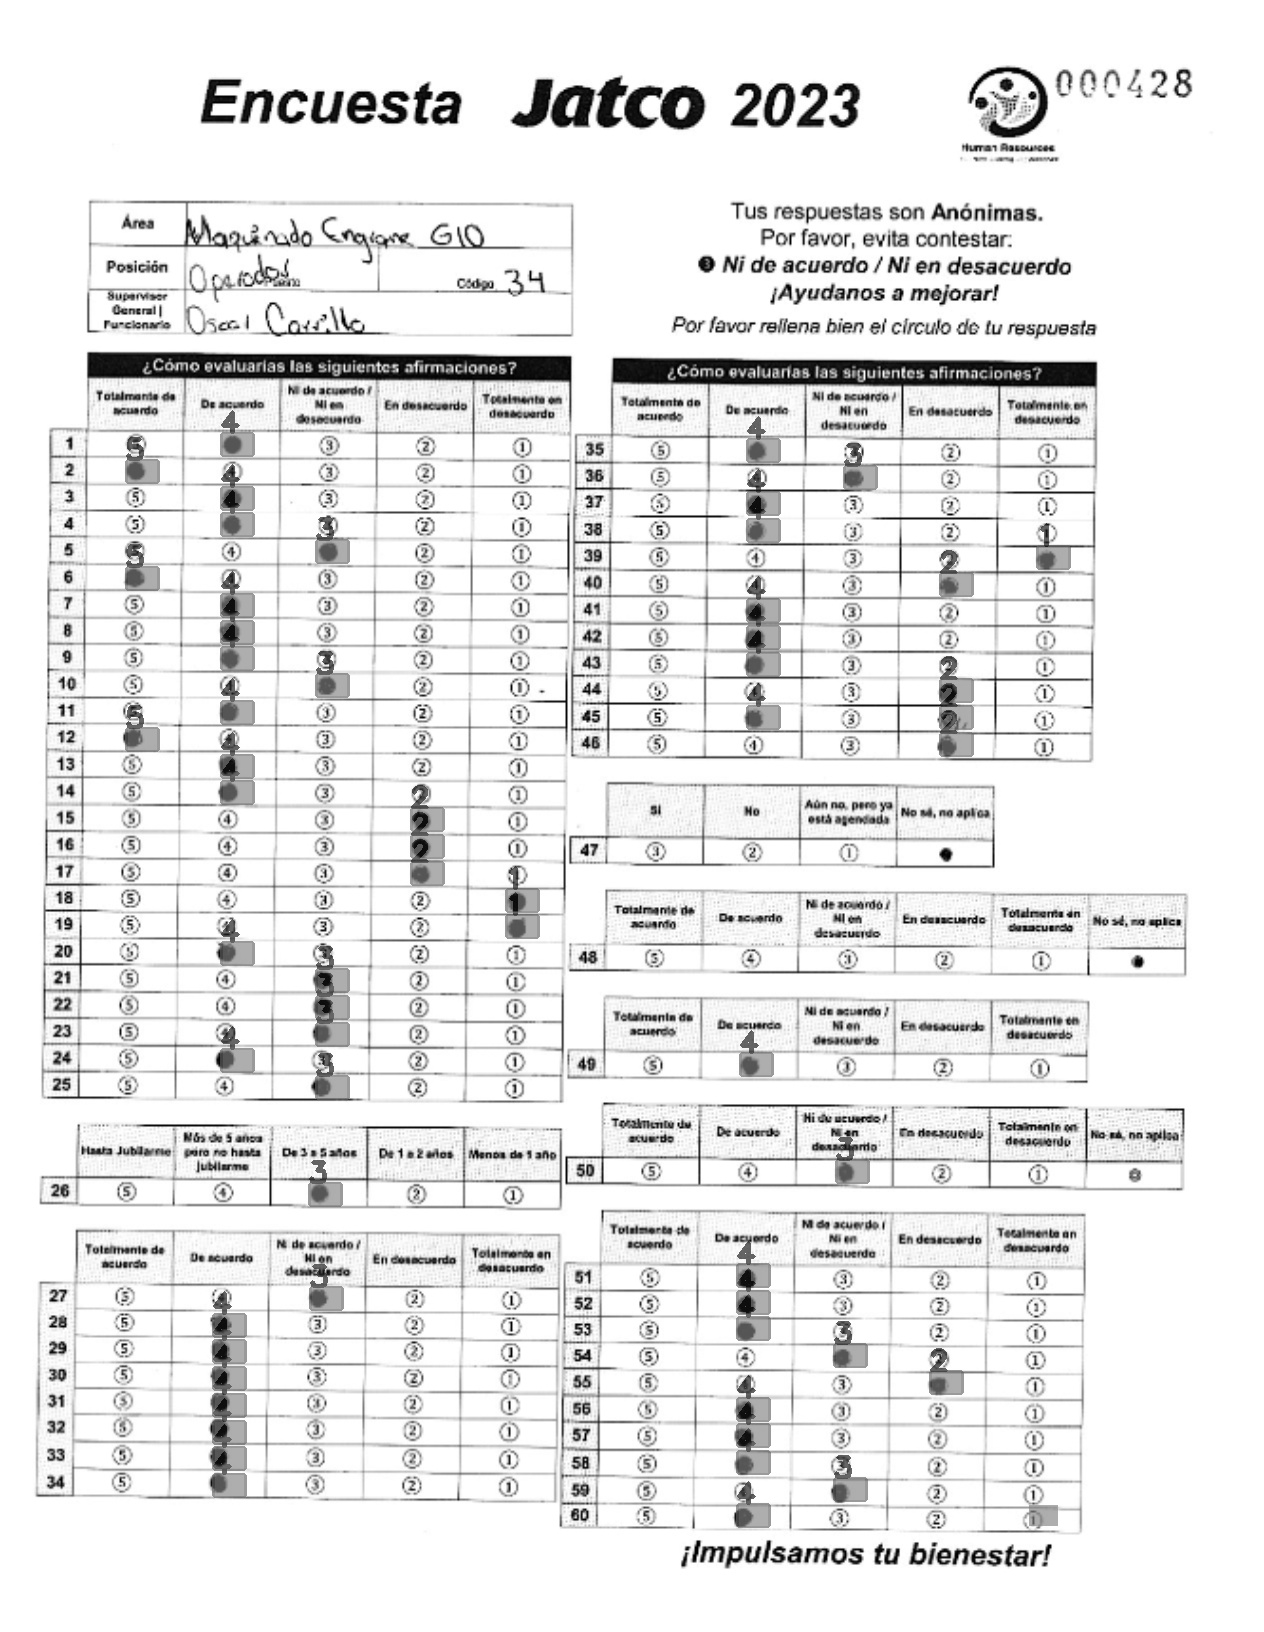 Encuesta Jatco 2023
000428
Human Resources
Área Maquinado Engrane G10
Posición Operador Código 34
Supervisor General | Funcionario Oscar Carrillo
Tus respuestas son Anónimas.
Por favor, evita contestar:
❸ Ni de acuerdo / Ni en desacuerdo
¡Ayudanos a mejorar!
Por favor rellena bien el círculo de tu respuesta
¿Cómo evaluarías las siguientes afirmaciones?
Totalmente de acuerdo De acuerdo Ni de acuerdo / Ni en desacuerdo En desacuerdo Totalmente en desacuerdo
1 5 4 3 2 1
2 5 4 3 2 1
3 5 4 3 2 1
4 5 4 3 2 1
5 5 4 3 2 1
6 5 4 3 2 1
7 5 4 3 2 1
8 5 4 3 2 1
9 5 4 3 2 1
10 5 4 3 2 1
11 5 4 3 2 1
12 5 4 3 2 1
13 5 4 3 2 1
14 5 4 3 2 1
15 5 4 3 2 1
16 5 4 3 2 1
17 5 4 3 2 1
18 5 4 3 2 1
19 5 4 3 2 1
20 5 4 3 2 1
21 5 4 3 2 1
22 5 4 3 2 1
23 5 4 3 2 1
24 5 4 3 2 1
25 5 4 3 2 1
Hasta Jubilarme Más de 5 años pero no hasta jubilarme De 3 a 5 años De 1 a 2 años Menos de 1 año
26 5 4 3 2 1
Totalmente de acuerdo De acuerdo Ni de acuerdo / Ni en desacuerdo En desacuerdo Totalmente en desacuerdo
27 5 4 3 2 1
28 5 4 3 2 1
29 5 4 3 2 1
30 5 4 3 2 1
31 5 4 3 2 1
32 5 4 3 2 1
33 5 4 3 2 1
34 5 4 3 2 1
¿Cómo evaluarías las siguientes afirmaciones?
Totalmente de acuerdo De acuerdo Ni de acuerdo / Ni en desacuerdo En desacuerdo Totalmente en desacuerdo
35 5 4 3 2 1
36 5 4 3 2 1
37 5 4 3 2 1
38 5 4 3 2 1
39 5 4 3 2 1
40 5 4 3 2 1
41 5 4 3 2 1
42 5 4 3 2 1
43 5 4 3 2 1
44 5 4 3 2 1
45 5 4 3 2 1
46 5 4 3 2 1
Si No Aún no, pero ya está agendada No sé, no aplica
47 3 2 1
Totalmente de acuerdo De acuerdo Ni de acuerdo / Ni en desacuerdo En desacuerdo Totalmente en desacuerdo No sé, no aplica
48 5 4 3 2 1
Totalmente de acuerdo De acuerdo Ni de acuerdo / Ni en desacuerdo En desacuerdo Totalmente en desacuerdo
49 5 4 3 2 1
Totalmente de acuerdo De acuerdo Ni de acuerdo / Ni en desacuerdo En desacuerdo Totalmente en desacuerdo No sé, no aplica
50 5 4 3 2 1
Totalmente de acuerdo De acuerdo Ni de acuerdo / Ni en desacuerdo En desacuerdo Totalmente en desacuerdo
51 5 4 3 2 1
52 5 4 3 2 1
53 5 4 3 2 1
54 5 4 3 2 1
55 5 4 3 2 1
56 5 4 3 2 1
57 5 4 3 2 1
58 5 4 3 2 1
59 5 4 3 2 1
60 5 4 3 2 1
¡Impulsamos tu bienestar!